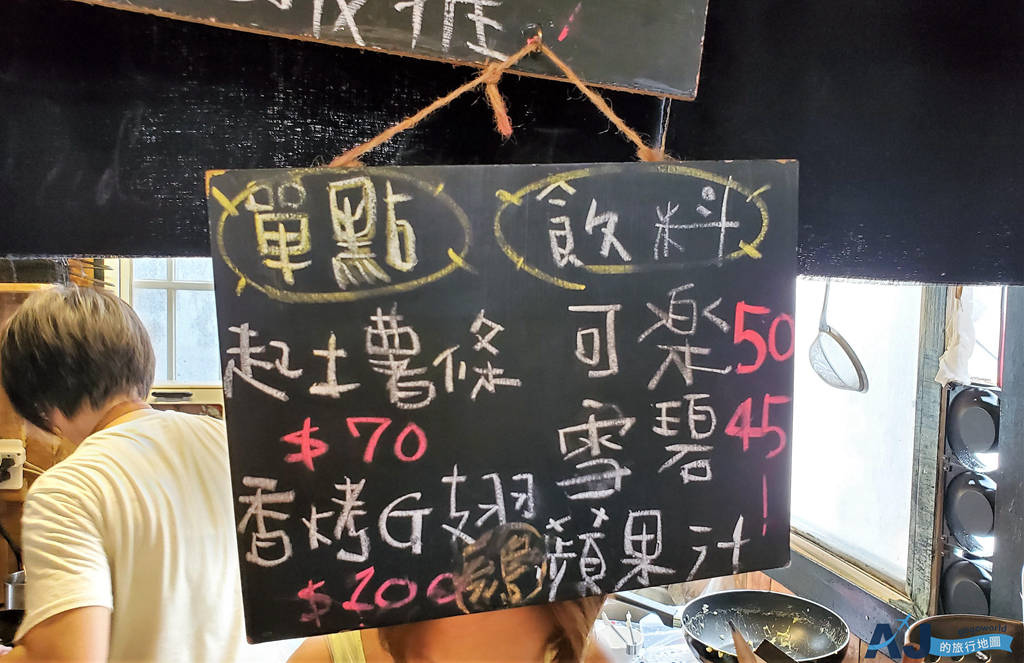 單點
起士薯條
$70
香烤G翅
$100
飲料
可楽 50
雪碧 45
蘋果汁 |
AJ
的旅行地圖